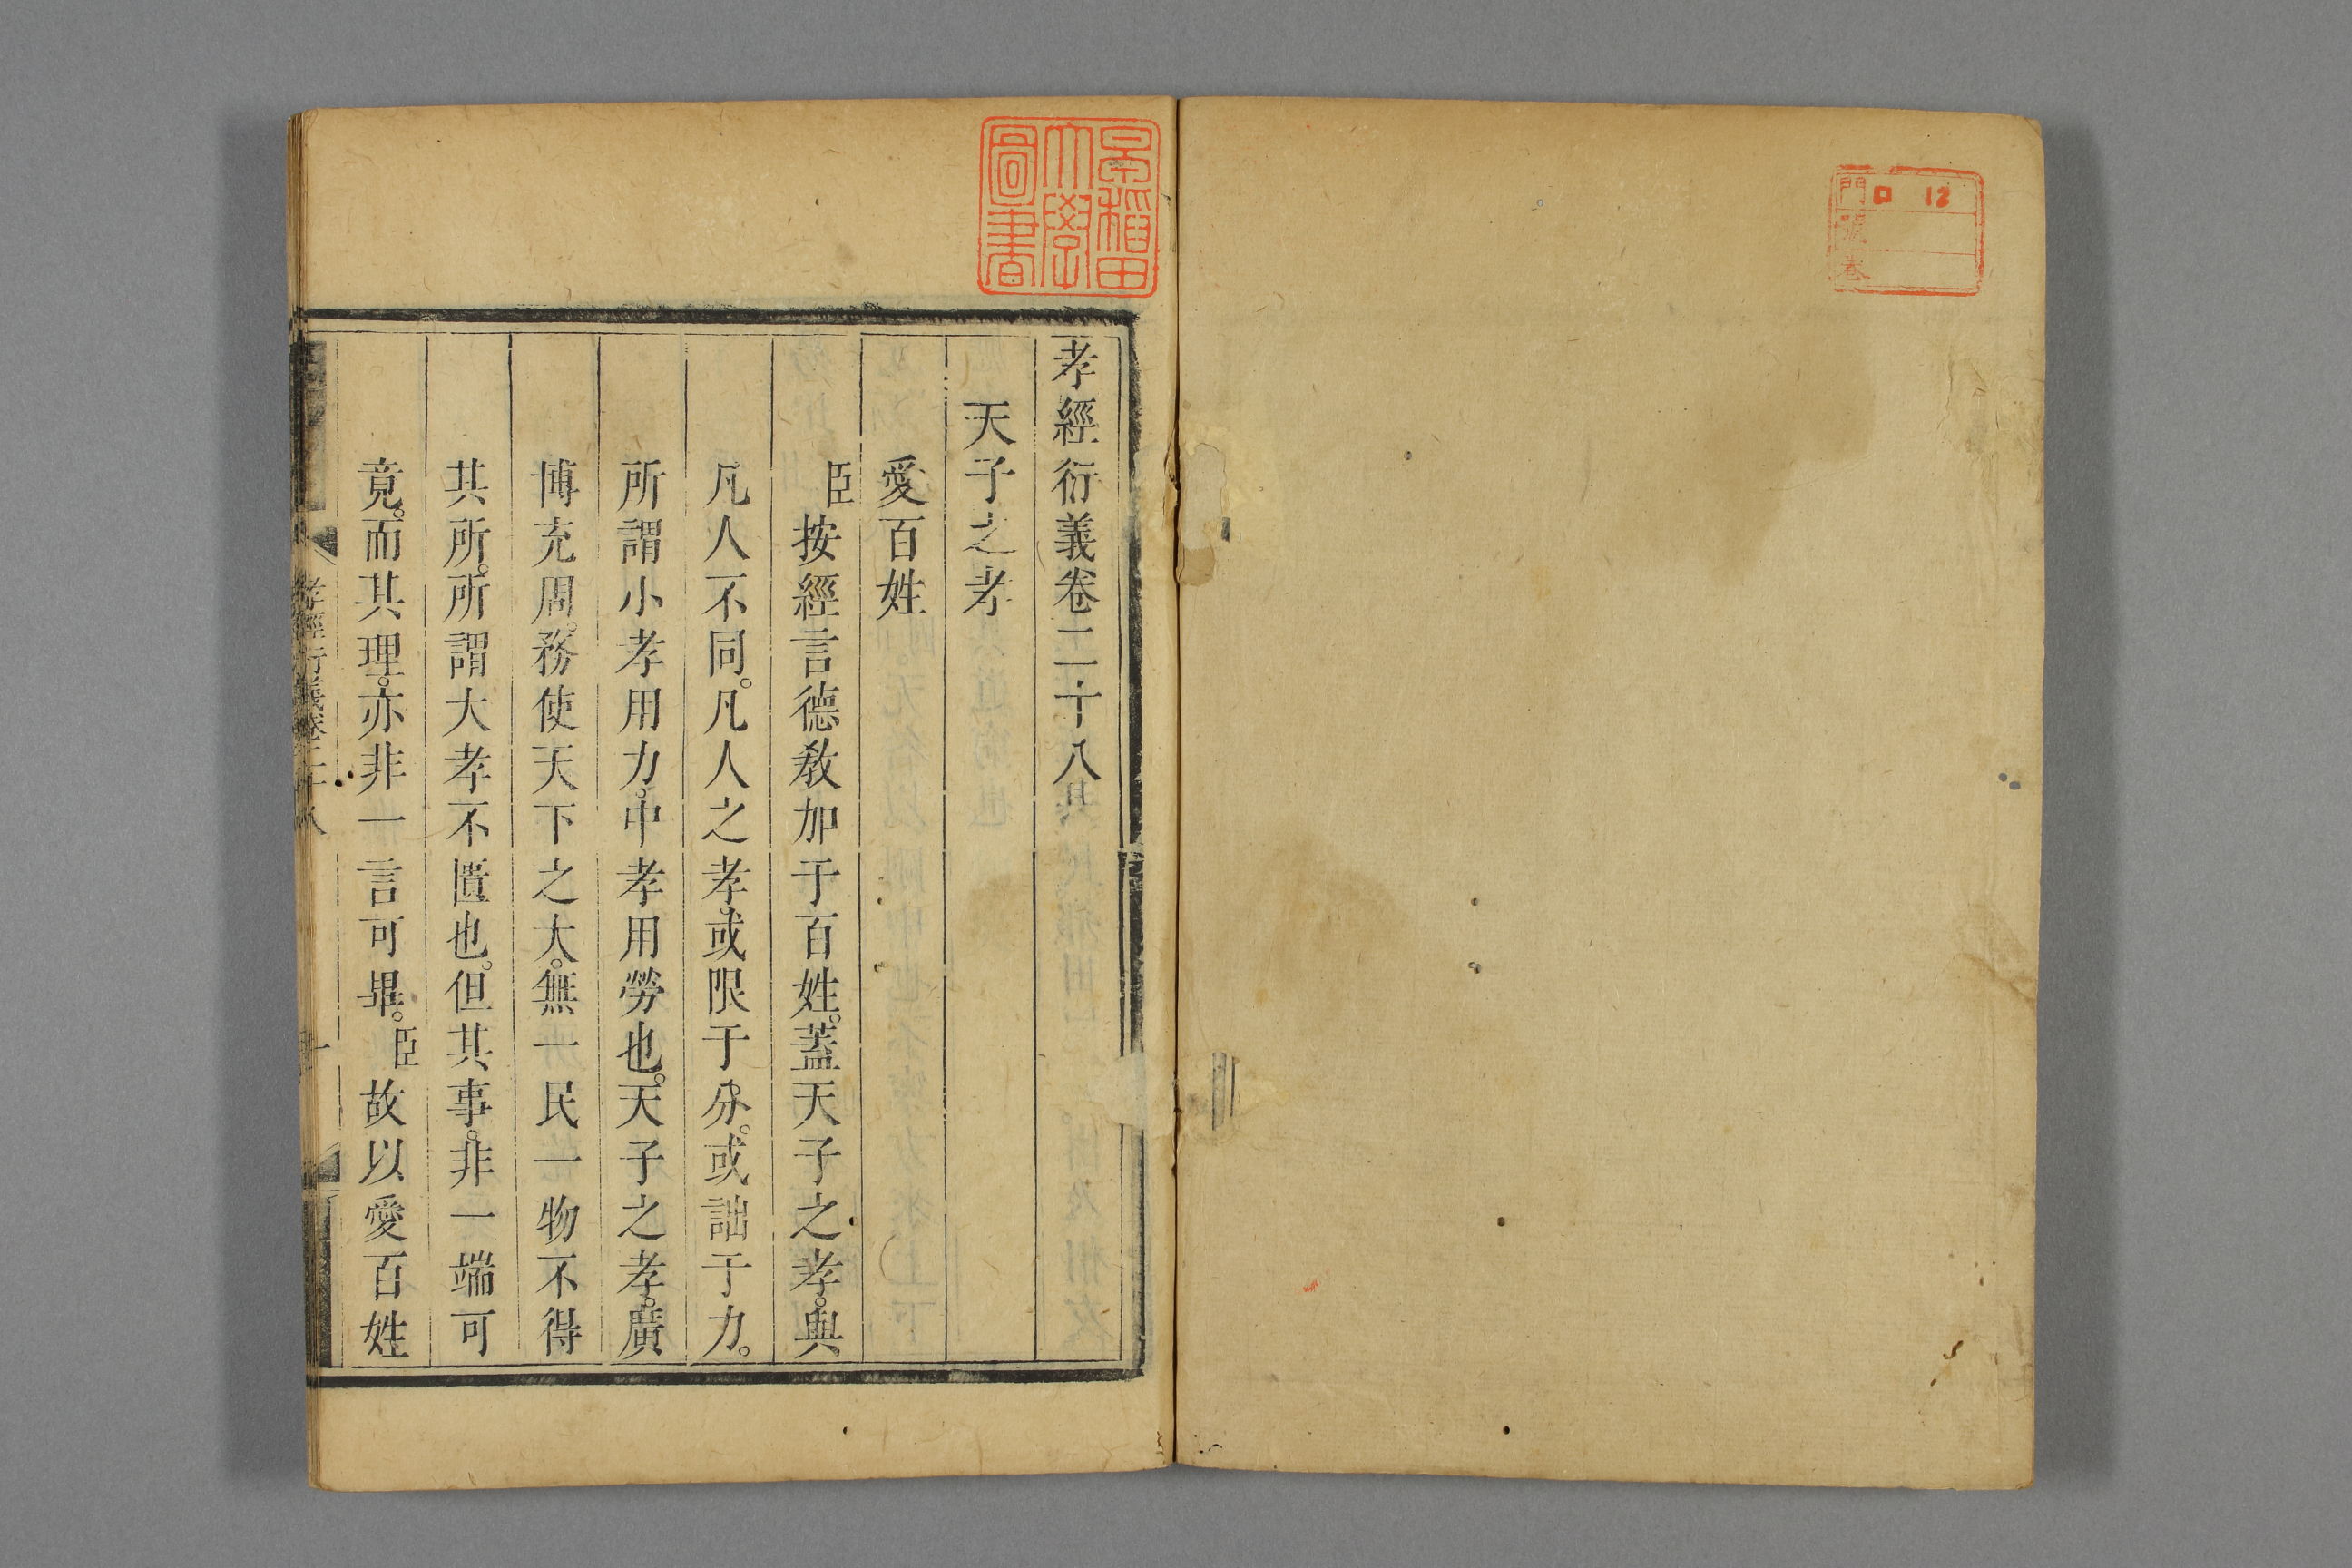 門 口 12
號
卷
早稲田
大學
圖書
孝經衍義卷二十八
天子之孝
愛百姓
臣按經言德教加于百姓。蓋天子之孝。與
凡人不同。凡人之孝。或限于分。或詘于力。
所謂小孝用力。中孝用勞也。天子之孝。廣
博充周。務使天下之大。無一民一物不得
其所。所謂大孝不匱也。但其事。非一端可
竟。而其理。亦非一言可畢。臣故以愛百姓
孝經衍義卷二十八
一